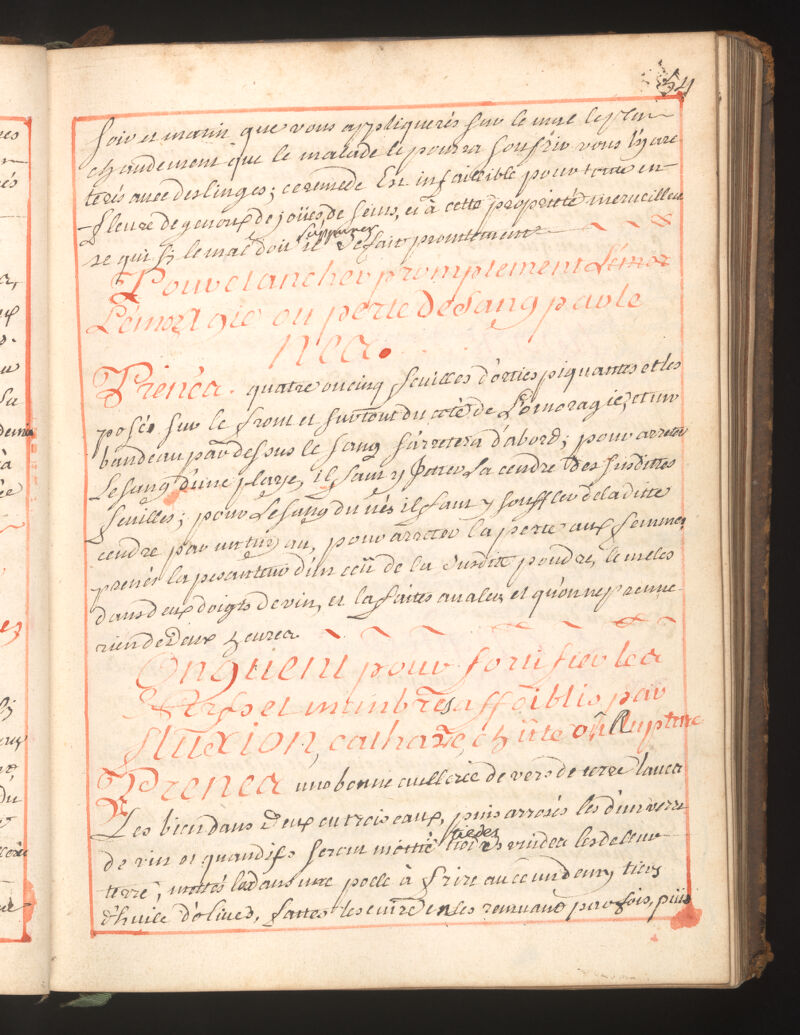 54
soir et matin que vous appliquerés sur le mal le plus
chaudement que le malade le pourra soufrir vous l'y are
terés avec des linges; ce remede Est infaillible pour toute en
fleure de genoux de joües, de seins, et à cette proprieté merveilleu
se qui si le mal doit suppurer il le fait promtement
Pour etancher promptement L'émor
L'émoragie ou perte de sang par le
nea.
Prenéa. quatre ou cinq feuilles d'orties piquantes et les
posés sur le front et surtout du coté de L'émoragie, et un
bandeau par dessus le sang s'arretera d'abord; pour arreter
Le sang d'une playe, il faut y Jetter La cendre des susdittes
feuilles; pour Le sang du nés il faut y souffler de la ditte
cendre par un tuyau, pour arretter la perte aux femmes
prenés la pesanteur d'un ecü de la susditte poudre, le melés
dans deux doigts de vin, et la faites avaler et qu'on ne prenne
rien de deux heurea.
Onguent pour fortifier lea
Nerfs et mambres affoiblis par
fluxion, catharre, chûte oû Rupture
Prenea une bonne cuillerée de vers de terre lavea
Les bien dans deux ou trois eaux, puis arrosés les d'un verre
de vin et quand ils seront moitié tiedes vuidea les de leur
terre, mettés les dans une poele à frire avec un demy tiers
d'huile d'olives, faites les cuire en les remuant par fois, puis